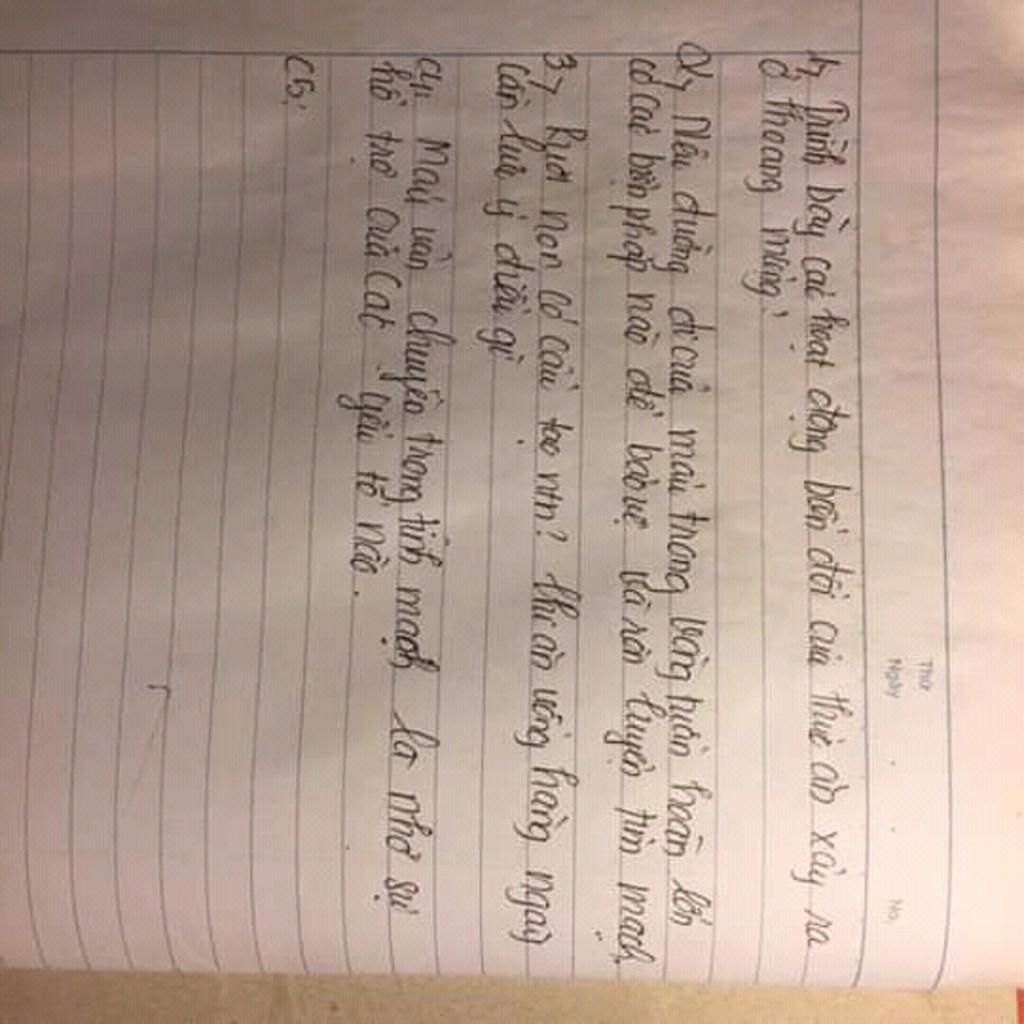 Thứ
Ngày . . No.
1, Trình bày các hoạt động biến đổi của thức ăn xảy ra
ở khoang miệng?
2, Nêu đường đi của máu trong vòng tuần hoàn lớn
có các biện pháp nào để bảo vệ và rèn luyện tim mạch
3, Ruột non có cấu tạo ntn? khi ăn uống hàng ngày
cần lưu ý điều gì
C4: Máu vận chuyển trong tĩnh mạch là nhờ sự
hỗ trợ của các yếu tố nào.
C5: